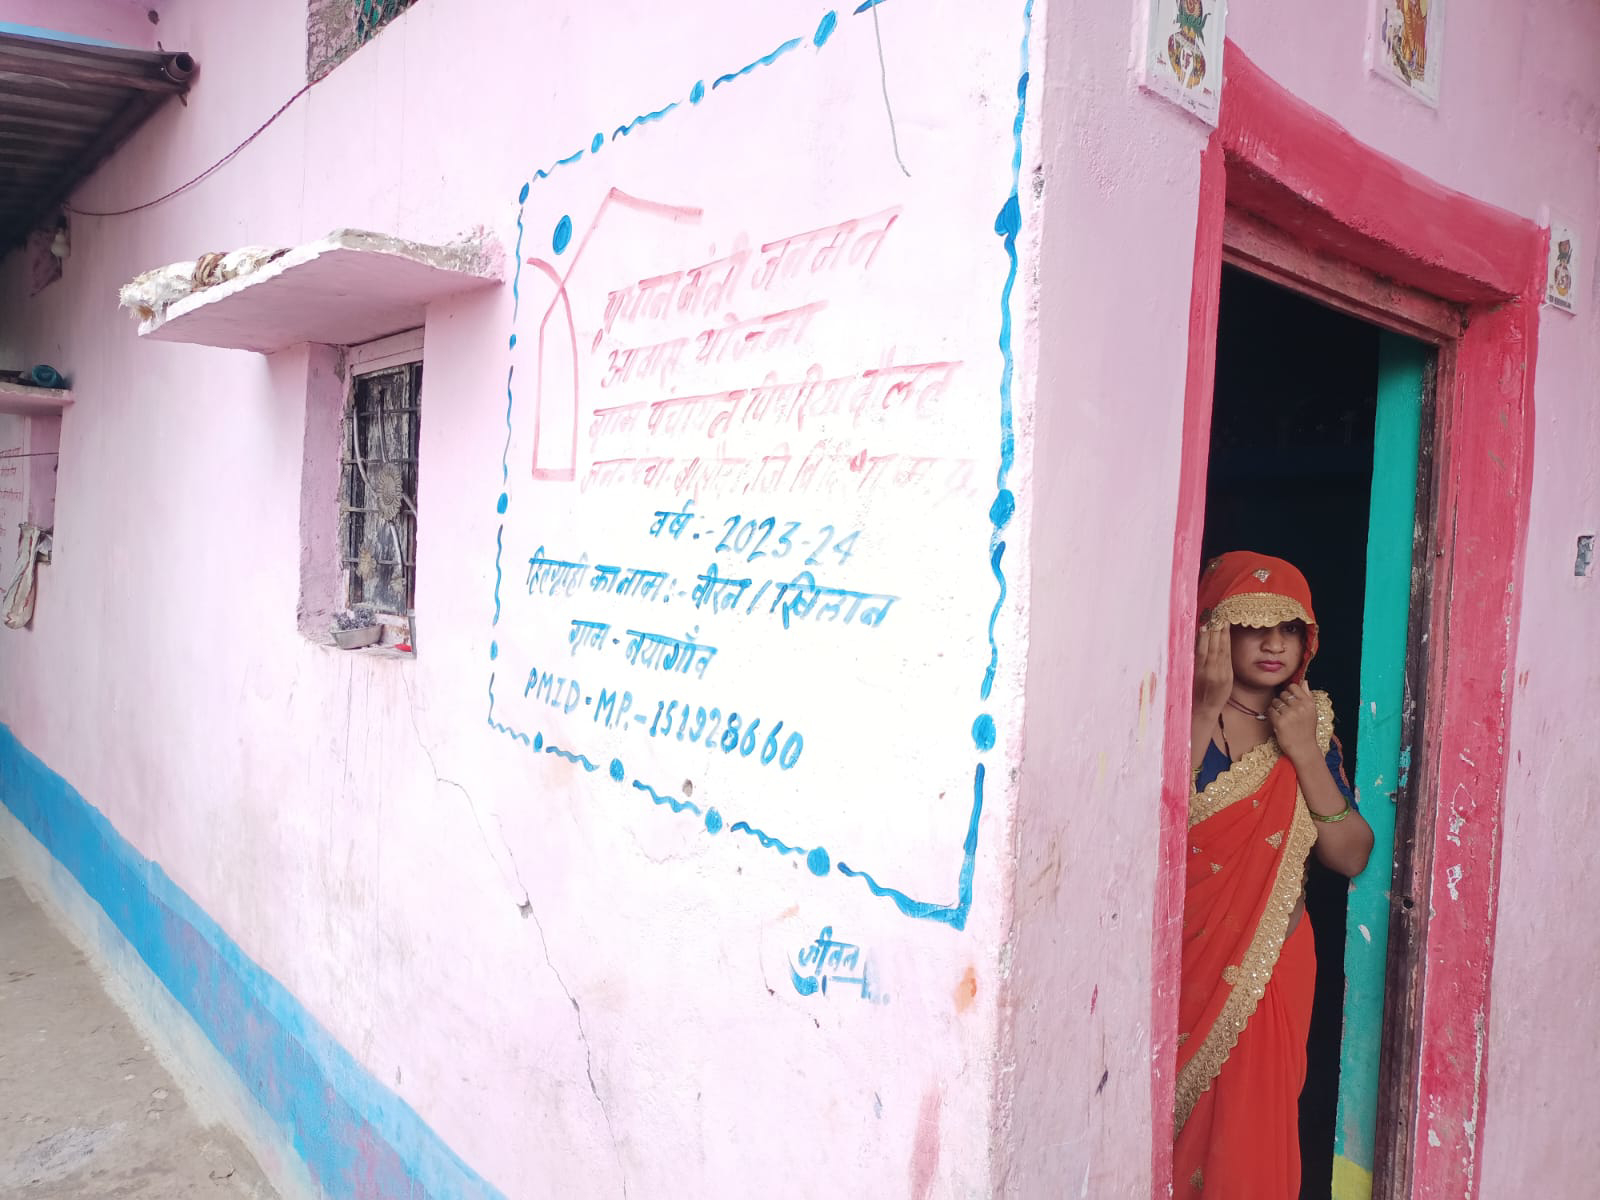 प्रधान मंत्री जनमन
आवास योजना
ग्राम पंचायत पिपरिया दौलत
जन. पंचा. बासौदा, जि. विदिशा म. प्र.
वर्ष :- 2023-24
हितग्राही का नाम :- वीरन / खिलान
ग्राम - नयागाँव
PMID - M.P. - 151928660
जीवन